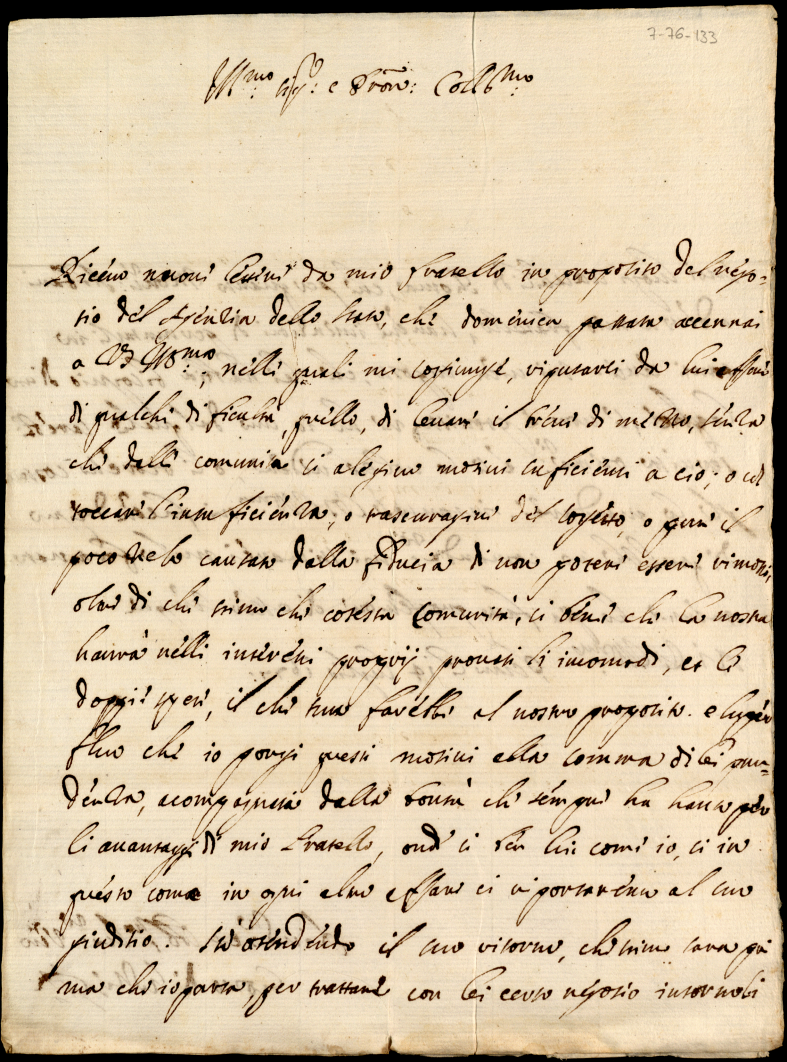 7-76-133
Ill.mo Sig.: e Pron: Coll.mo
Riceuo nuoui lettere da mio fratello in proposito del nego=
tio del Agentia dello stato, che domenica passata accennai
a VS Ill.ma; nelli quali mi soggiunge, riputarsi da lui essere
di qualche dificultà, quello, di leuare il bene di mezzo, senza
che dalle comunità si alegino motiui suficienti a cio; o col
toccare l'insuficienza, o trascuragine del sogetto, o pure il
poco zelo causato dalla fiducia di non potere essere rimosso,
oltre di che stimo che cotesta Comunità, si bene che la nostra
haurà nelli interessi proprij prouati li incomodi, et le
doppie spese, il che tutto farebbe al nostro proposito. e super
fluo che io porgi questi motiui alla somma di lei pru=
denza, acompagnata dalla bontà che sempre ha hauto per
li auantaggi di mio fratello, onde si ben lui come io, si in
questo come in ogni altro affare ci riportaremo al suo
giuditio. Stò atendendo il suo ritorno, che stimo sarà pri
ma che io parta, per trattare con lei certo negotio intorno li